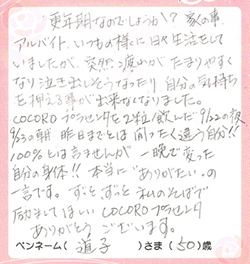 更年期なのでしょうか? 家の事、
アルバイト、いつもの様に日々生活をして
いましたが、突然、涙がたまりやすく
なり泣き出しそうなったり 自分の気持ち
を抑える事が出来なくなりました。
COCORO プラセンタを2粒飲んだ9/22の夜
9/23の朝 昨日までとは 間ったく違う自分!!
100%とは言ませんが 一晩で変った
自分の身体!! 本当に"ありがたい"の
一言です。ずっと、ずっと 私のそばで
励ましてほしい COCORO プラセンタ
ありがとう ございます。
ペンネーム( 道子 )さま(50)歳